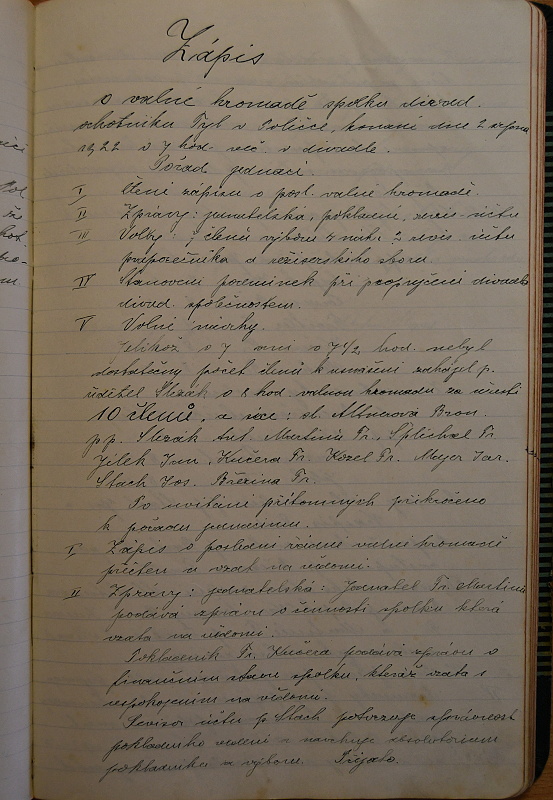 Zápis
o valné hromadě spolku divad.
ochotníků Tyl v Poličce, konané dne 2 srpna
1922 o 7 hod. več. v divadle.
Pořad jednací.
I Čtení zápisu o posl. valné hromadě.
II Zprávy: jednatelská, pokladní, revis. účtů
III Volby: 7 členů výboru 4 náhr. 2 revis. účtů
praporečníka a režiserského sboru.
IV Stanovení podmínek při propůjčení divadla
divad. společnostem.
V Volné návrhy.
Jelikož o 7 ani o 7 1/2 hod. nebyl
dostatečný počet členů k usnášení zahájil p.
učitel Slezák o 8 hod. valnou hromadu za účasti
10 členů, a sice: sl. Altnerová Bron.
p.p. Slezák Ant. Martinů Fr., Šplíchal Fr.
Jílek Jan, Kučera Fr. Kozel Fr. Mejer Jar.
Stach Jos. Březina Fr.
Po uvítání přítomných přikročeno
k pořadu jednacímu.
I. Zápis o poslední řádné valné hromadě
přečten a vzat na vědomí.
II Zprávy: jednatelská: Jednatel Fr. Martinů
podává zprávu o činnosti spolku která
vzata na vědomí.
Pokladník Fr. Kučera podává zprávu o
finančním stavu spolku, kteráž vzata s
uspokojením na vědomí.
Revisor účtů p. Stach potvrzuje správnost
pokladního vedení a navrhuje absolutorium
pokladníku a výboru. Přijato.